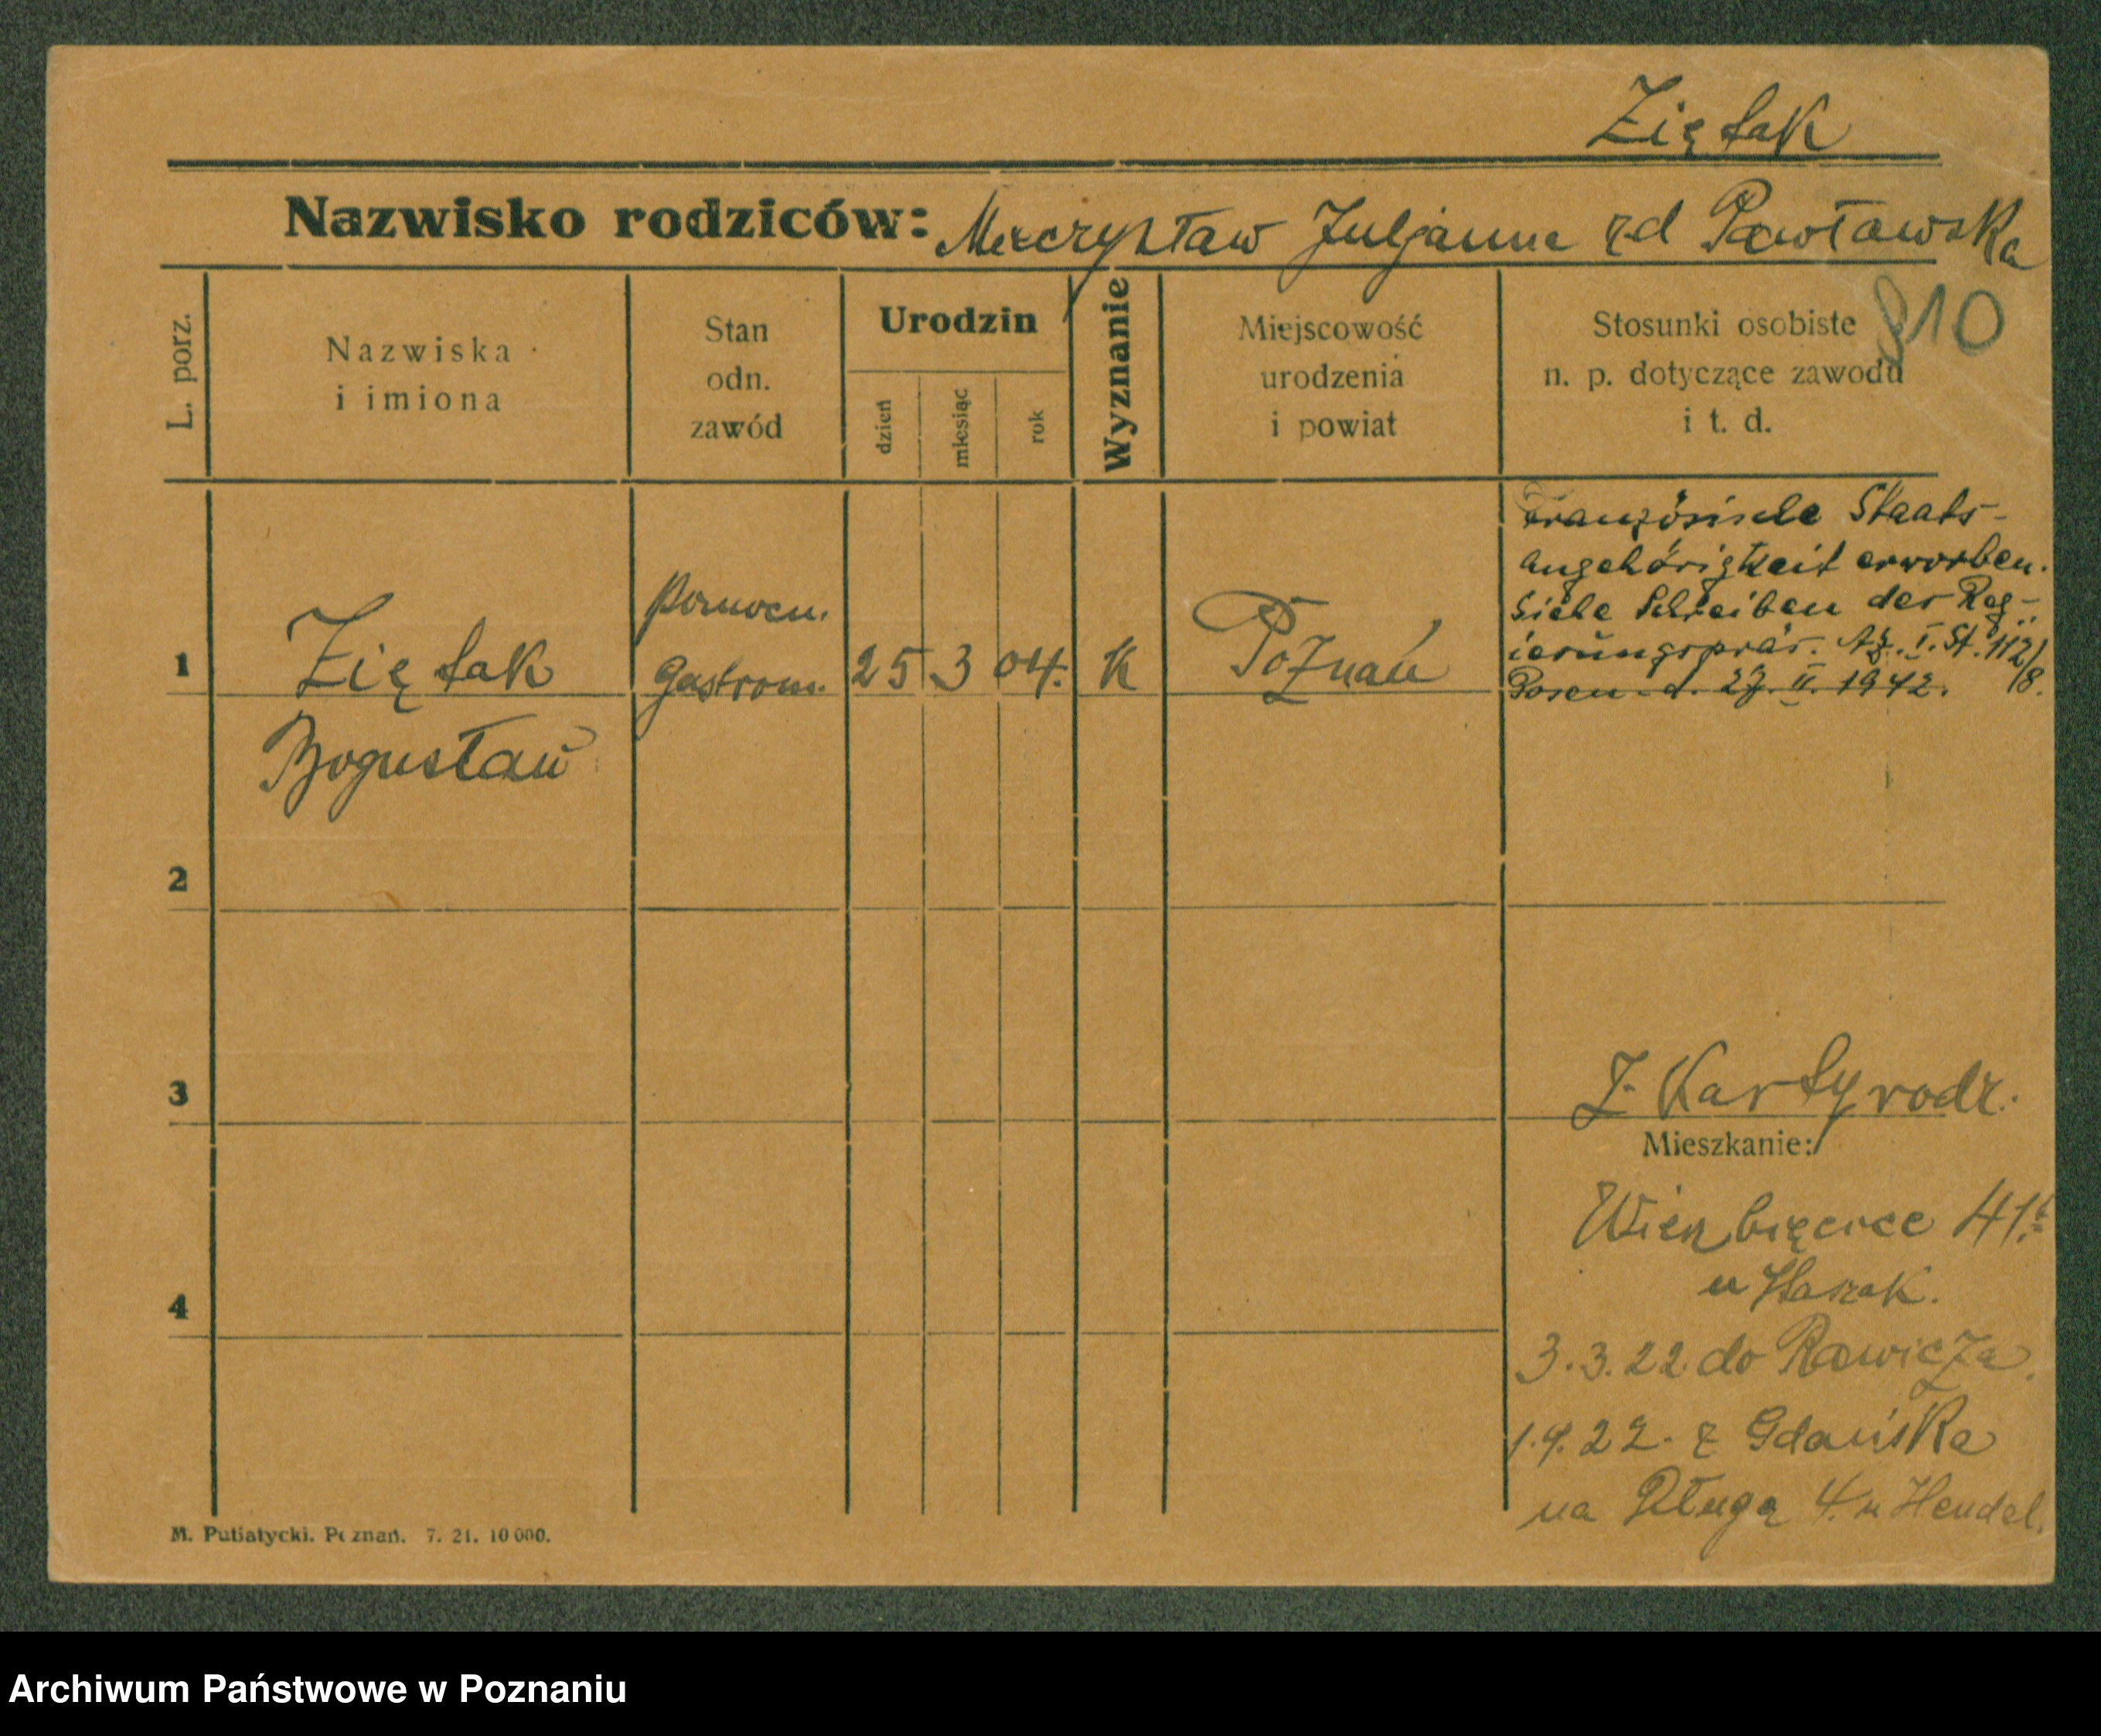 Ziętak
Nazwisko rodziców: Mieczysław Juljanna zd Pawławska
810
L. porz.
Nazwiska
i imiona
Stan
odn.
zawód
Urodzin
dzień
miesiąc
rok
Wyznanie
Miejscowość
urodzenia
i powiat
Stosunki osobiste
n. p. dotyczące zawodu
i t. d.
1
Ziętak
Bogusław
pomocn.
Gastrom.
25 3 04.
K
Poznań
Französische Staats-
angehörigkeit erworben.
Siehe Schreiben der Reg-
ierungspräs. Az. I. St. 112/8.
Posen d. 27. II. 1942.
2
3
Z Karty rodz.
Mieszkanie:
4
Wierzbięcice 41.
u
3.3.22. do Rawicza.
1.9.22. z Gdańska
na Długą 4. u Hendel.
M. Putiatycki. Poznań. 7. 21. 10 000.
Archiwum Państwowe w Poznaniu